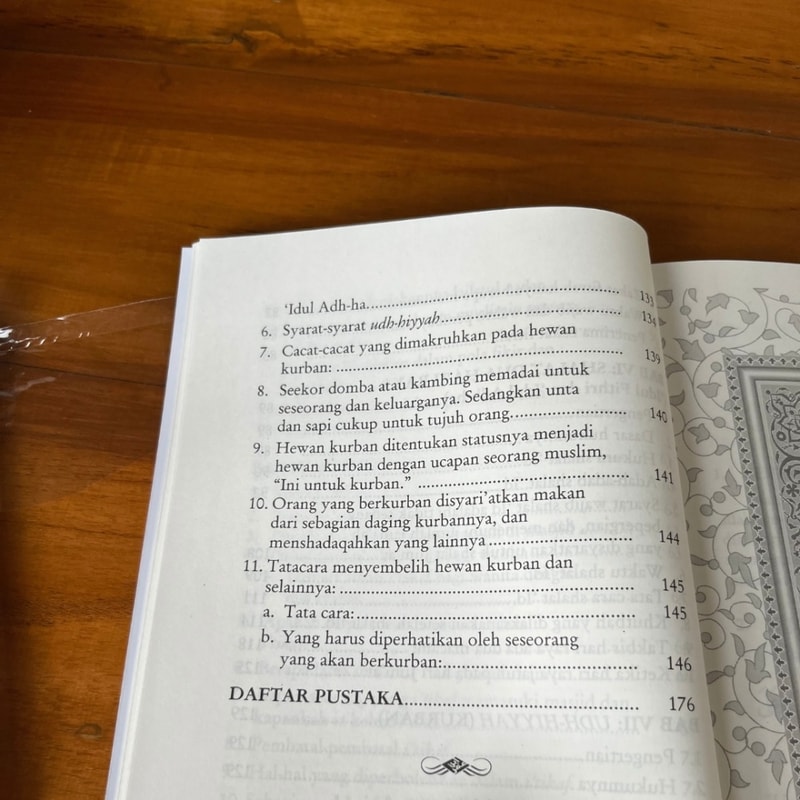 'Idul Adh-ha.................................................... 133
6. Syarat-syarat udh-hiyyah........................................ 134
7. Cacat-cacat yang dimakruhkan pada hewan
kurban: ........................................................ 139
8. Seekor domba atau kambing memadai untuk
seseorang dan keluarganya. Sedangkan unta
dan sapi cukup untuk tujuh orang....................... 140
9. Hewan kurban ditentukan statusnya menjadi
hewan kurban dengan ucapan seorang muslim,
"Ini untuk kurban." ........................................ 141
10. Orang yang berkurban disyari'atkan makan
dari sebagian daging kurbannya, dan
menshadaqahkan yang lainnya ............................ 144
11. Tatacara menyembelih hewan kurban dan
selainnya: ..................................................... 145
a. Tata cara:................................................... 145
b. Yang harus diperhatikan oleh seseorang
yang akan berkurban:...................................... 146
DAFTAR PUSTAKA............................................. 176